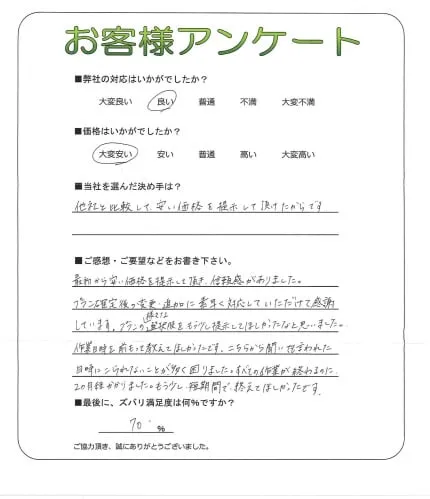 お客様アンケート
■弊社の対応はいかがでしたか？
大変良い 良い 普通 不満 大変不満
■価格はいかがでしたか？
大変安い 安い 普通 高い 大変高い
■当社を選んだ決め手は？
他社と比較して、安い価格を提示して頂けたからです
■ご感想・ご要望などをお書き下さい。
最初から安い価格を提示して頂き、信頼感がありました。
プラン確定後の変更・追加に素早く対応していただけて感謝
しています。プランの選択肢をもう少し提示してほしかったなと思いました。
作業日時を前もって教えてほしかったです。こちらから聞い
日時にこられないことが多く困りました。すべての作業が終わるのに、
2カ月程かかりました。もう少し短期間で、終えてほしかったです。
■最後に、ズバリ満足度は何％ですか？
70 %
ご協力頂き、誠にありがとうございました。